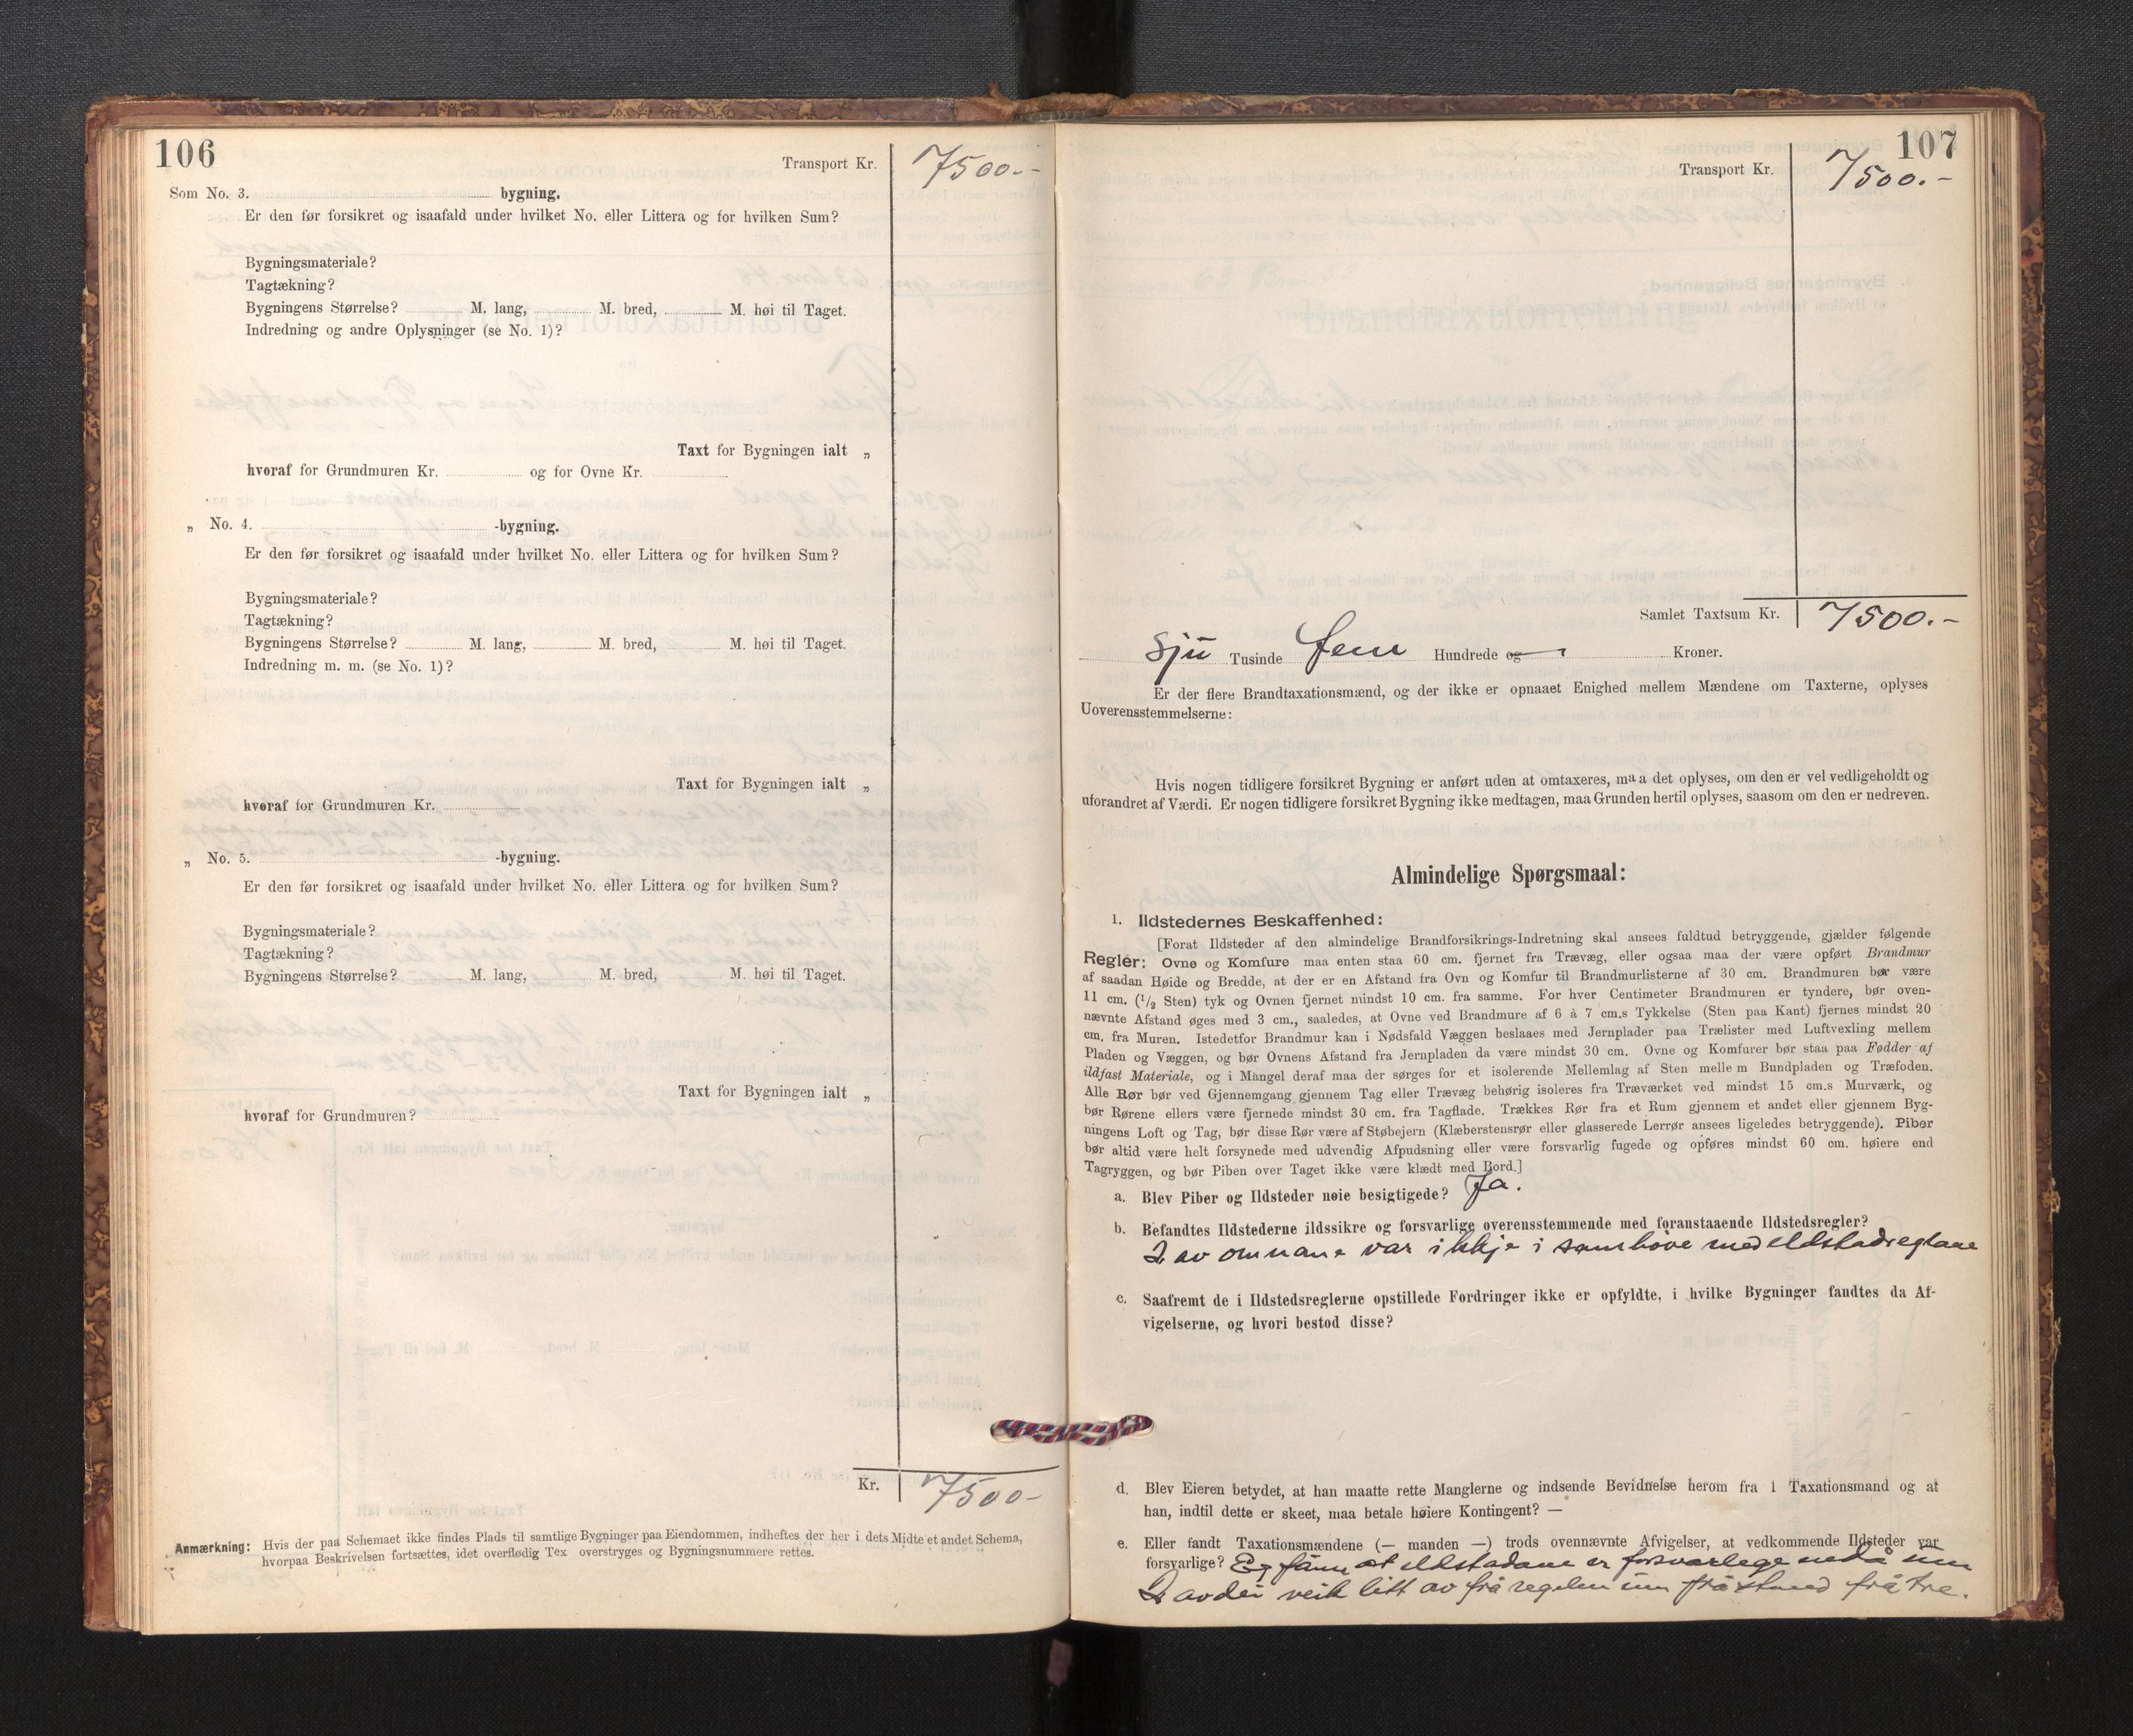 106
Transport Kr. 7500.-
Som No. 3. bygning.
Er den før forsikret og isaafald under hvilket No. eller Littera og for hvilken Sum?
Bygningsmateriale?
Tagtækning?
Bygningens Størrelse? M. lang, M. bred, M. høi til Taget.
Indredning og andre Oplysninger (se No. 1)?
Taxt for Bygningen ialt „
hvoraf for Grundmuren Kr. og for Ovne Kr.
„ No. 4. -bygning.
Er den før forsikret og isaafald under hvilket No. eller Littera og for hvilken Sum?
Bygningsmateriale?
Tagtækning?
Bygningens Størrelse? M. lang, M. bred, M. høi til Taget.
Indredning m. m. (se No. 1)?
Taxt for Bygningen ialt „
hvoraf for Grundmuren Kr.
„ No. 5. -bygning.
Er den før forsikret og isaafald under hvilket No. eller Littera og for hvilken Sum?
Bygningsmateriale?
Tagtækning?
Bygningens Størrelse? M. lang, M. bred, M. høi til Taget.
Taxt for Bygningen ialt „
hvoraf for Grundmuren?
Kr. 7500-
Anmærkning: Hvis der paa Schemaet ikke findes Plads til samtlige Bygninger paa Eiendommen, indheftes der her i dets Midte et andet Schema,
hvorpaa Beskrivelsen fortsættes, idet overflødig Tex overstryges og Bygningsnummere rettes.
107
Transport Kr. 7500.-
Samlet Taxtsum Kr. 7500.-
Sju Tusinde fem Hundrede og Kroner.
Er der flere Brandtaxationsmænd, og der ikke er opnaaet Enighed mellem Mændene om Taxterne, oplyses
Uoverensstemmelserne:
Hvis nogen tidligere forsikret Bygning er anført uden at omtaxeres, maa det oplyses, om den er vel vedligeholdt og
uforandret af Værdi. Er nogen tidligere forsikret Bygning ikke medtagen, maa Grunden hertil oplyses, saasom om den er nedreven.
Almindelige Spørgsmaal:
1. Ildstedernes Beskaffenhed:
[Forat Ildsteder af den almindelige Brandforsikrings-Indretning skal ansees fuldtud betryggende, gjælder følgende
Regler: Ovne og Komfure maa enten staa 60 cm. fjernet fra Trævæg, eller ogsaa maa der være opført Brandmur
af saadan Høide og Bredde, at der er en Afstand fra Ovn og Komfur til Brandmurlisterne af 30 cm. Brandmuren bør være
11 cm. (1/2 Sten) tyk og Ovnen fjernet mindst 10 cm. fra samme. For hver Centimeter Brandmuren er tyndere, bør oven-
nævnte Afstand øges med 3 cm., saaledes, at Ovne ved Brandmure af 6 à 7 cm.s Tykkelse (Sten paa Kant) fjernes mindst 20
cm. fra Muren. Istedetfor Brandmur kan i Nødsfald Væggen beslaaes med Jernplader paa Trælister med Luftvexling mellem
Pladen og Væggen, og bør Ovnens Afstand fra Jernpladen da være mindst 30 cm. Ovne og Komfurer bør staa paa Fødder af
ildfast Materiale, og i Mangel deraf maa der sørges for et isolerende Mellemlag af Sten mellem Bundpladen og Træfoden.
Alle Rør bør ved Gjennemgang gjennem Tag eller Trævæg behørig isoleres fra Træværket ved mindst 15 cm.s Murværk, og
bør Rørene ellers være fjernede mindst 30 cm. fra Tagflade. Trækkes Rør fra et Rum gjennem et andet eller gjennem Byg-
ningens Loft og Tag, bør disse Rør være af Støbejern (Klæberstensrør eller glasserede Lerrør ansees ligeledes betryggende). Piber
bør altid være helt forsynede med udvendig Afpudsning eller være forsvarlig fugede og opføres mindst 60 cm. høiere end
Tagryggen, og bør Piben over Taget ikke være klædt med Bord.]
a. Blev Piber og Ildsteder nøie besigtigede? Ja.
b. Befandtes Ildstederne ildssikre og forsvarlige overensstemmende med foranstaaende Ildstedsregler?
2 av omnane var ikkje i samhøve med eldstadreglane
c. Saafremt de i Ildstedsreglerne opstillede Fordringer ikke er opfyldte, i hvilke Bygninger fandtes da Af-
vigelserne, og hvori bestod disse?
d. Blev Eieren betydet, at han maatte rette Manglerne og indsende Bevidnelse herom fra 1 Taxationsmand og at
han, indtil dette er skeet, maa betale høiere Kontingent? —
e. Eller fandt Taxationsmændene (— manden —) trods ovennævnte Afvigelser, at vedkommende Ildsteder var
forsvarlige? Eg finn at eldstadane er forsvarlege endå um
2 av dei veik litt av frå regelen um fråstand frå tre.